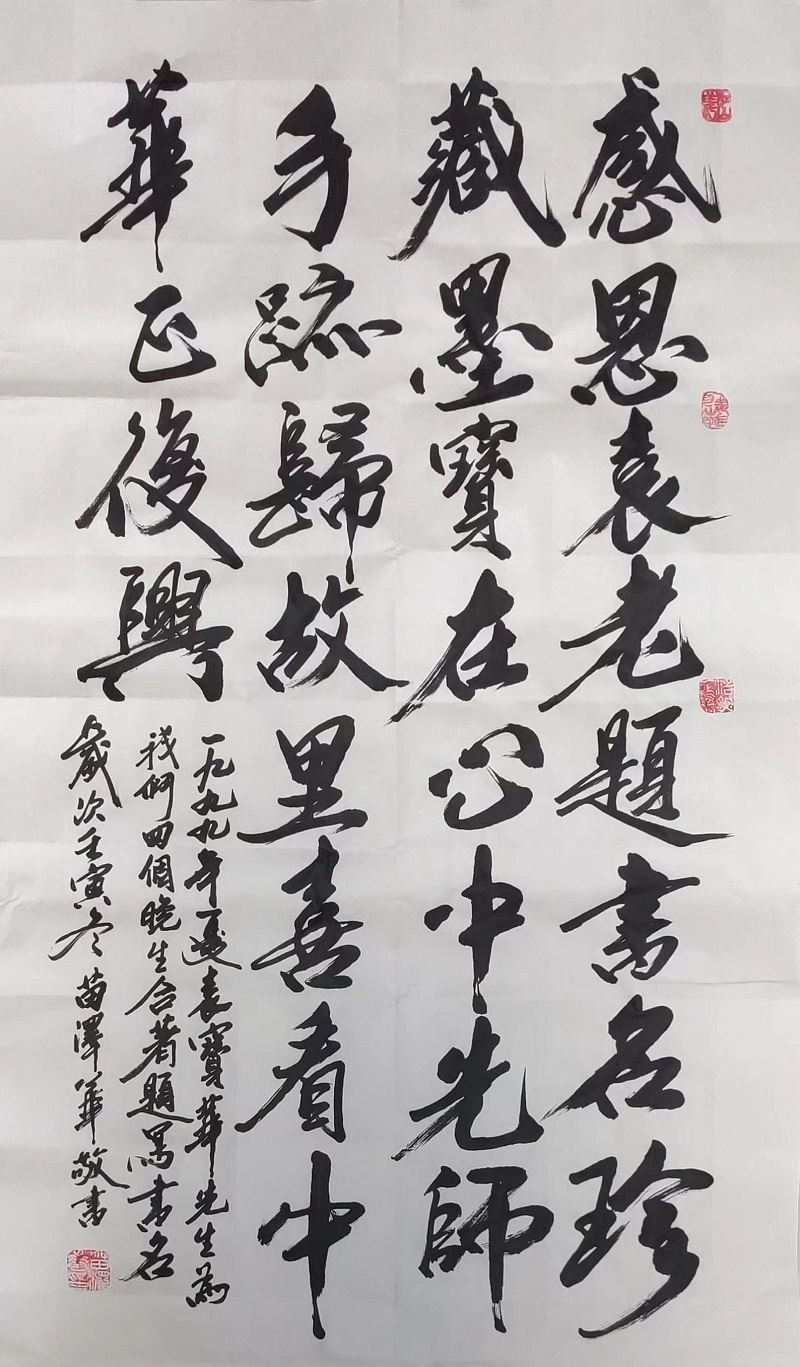 感恩袁老題書名珍
藏墨寶在心中先師
手跡歸故里喜看中
華正復興
一九九九年邀袁寶華先生爲
我們四個晚生合著題寫書名
歲次壬寅冬苗澤華敬書